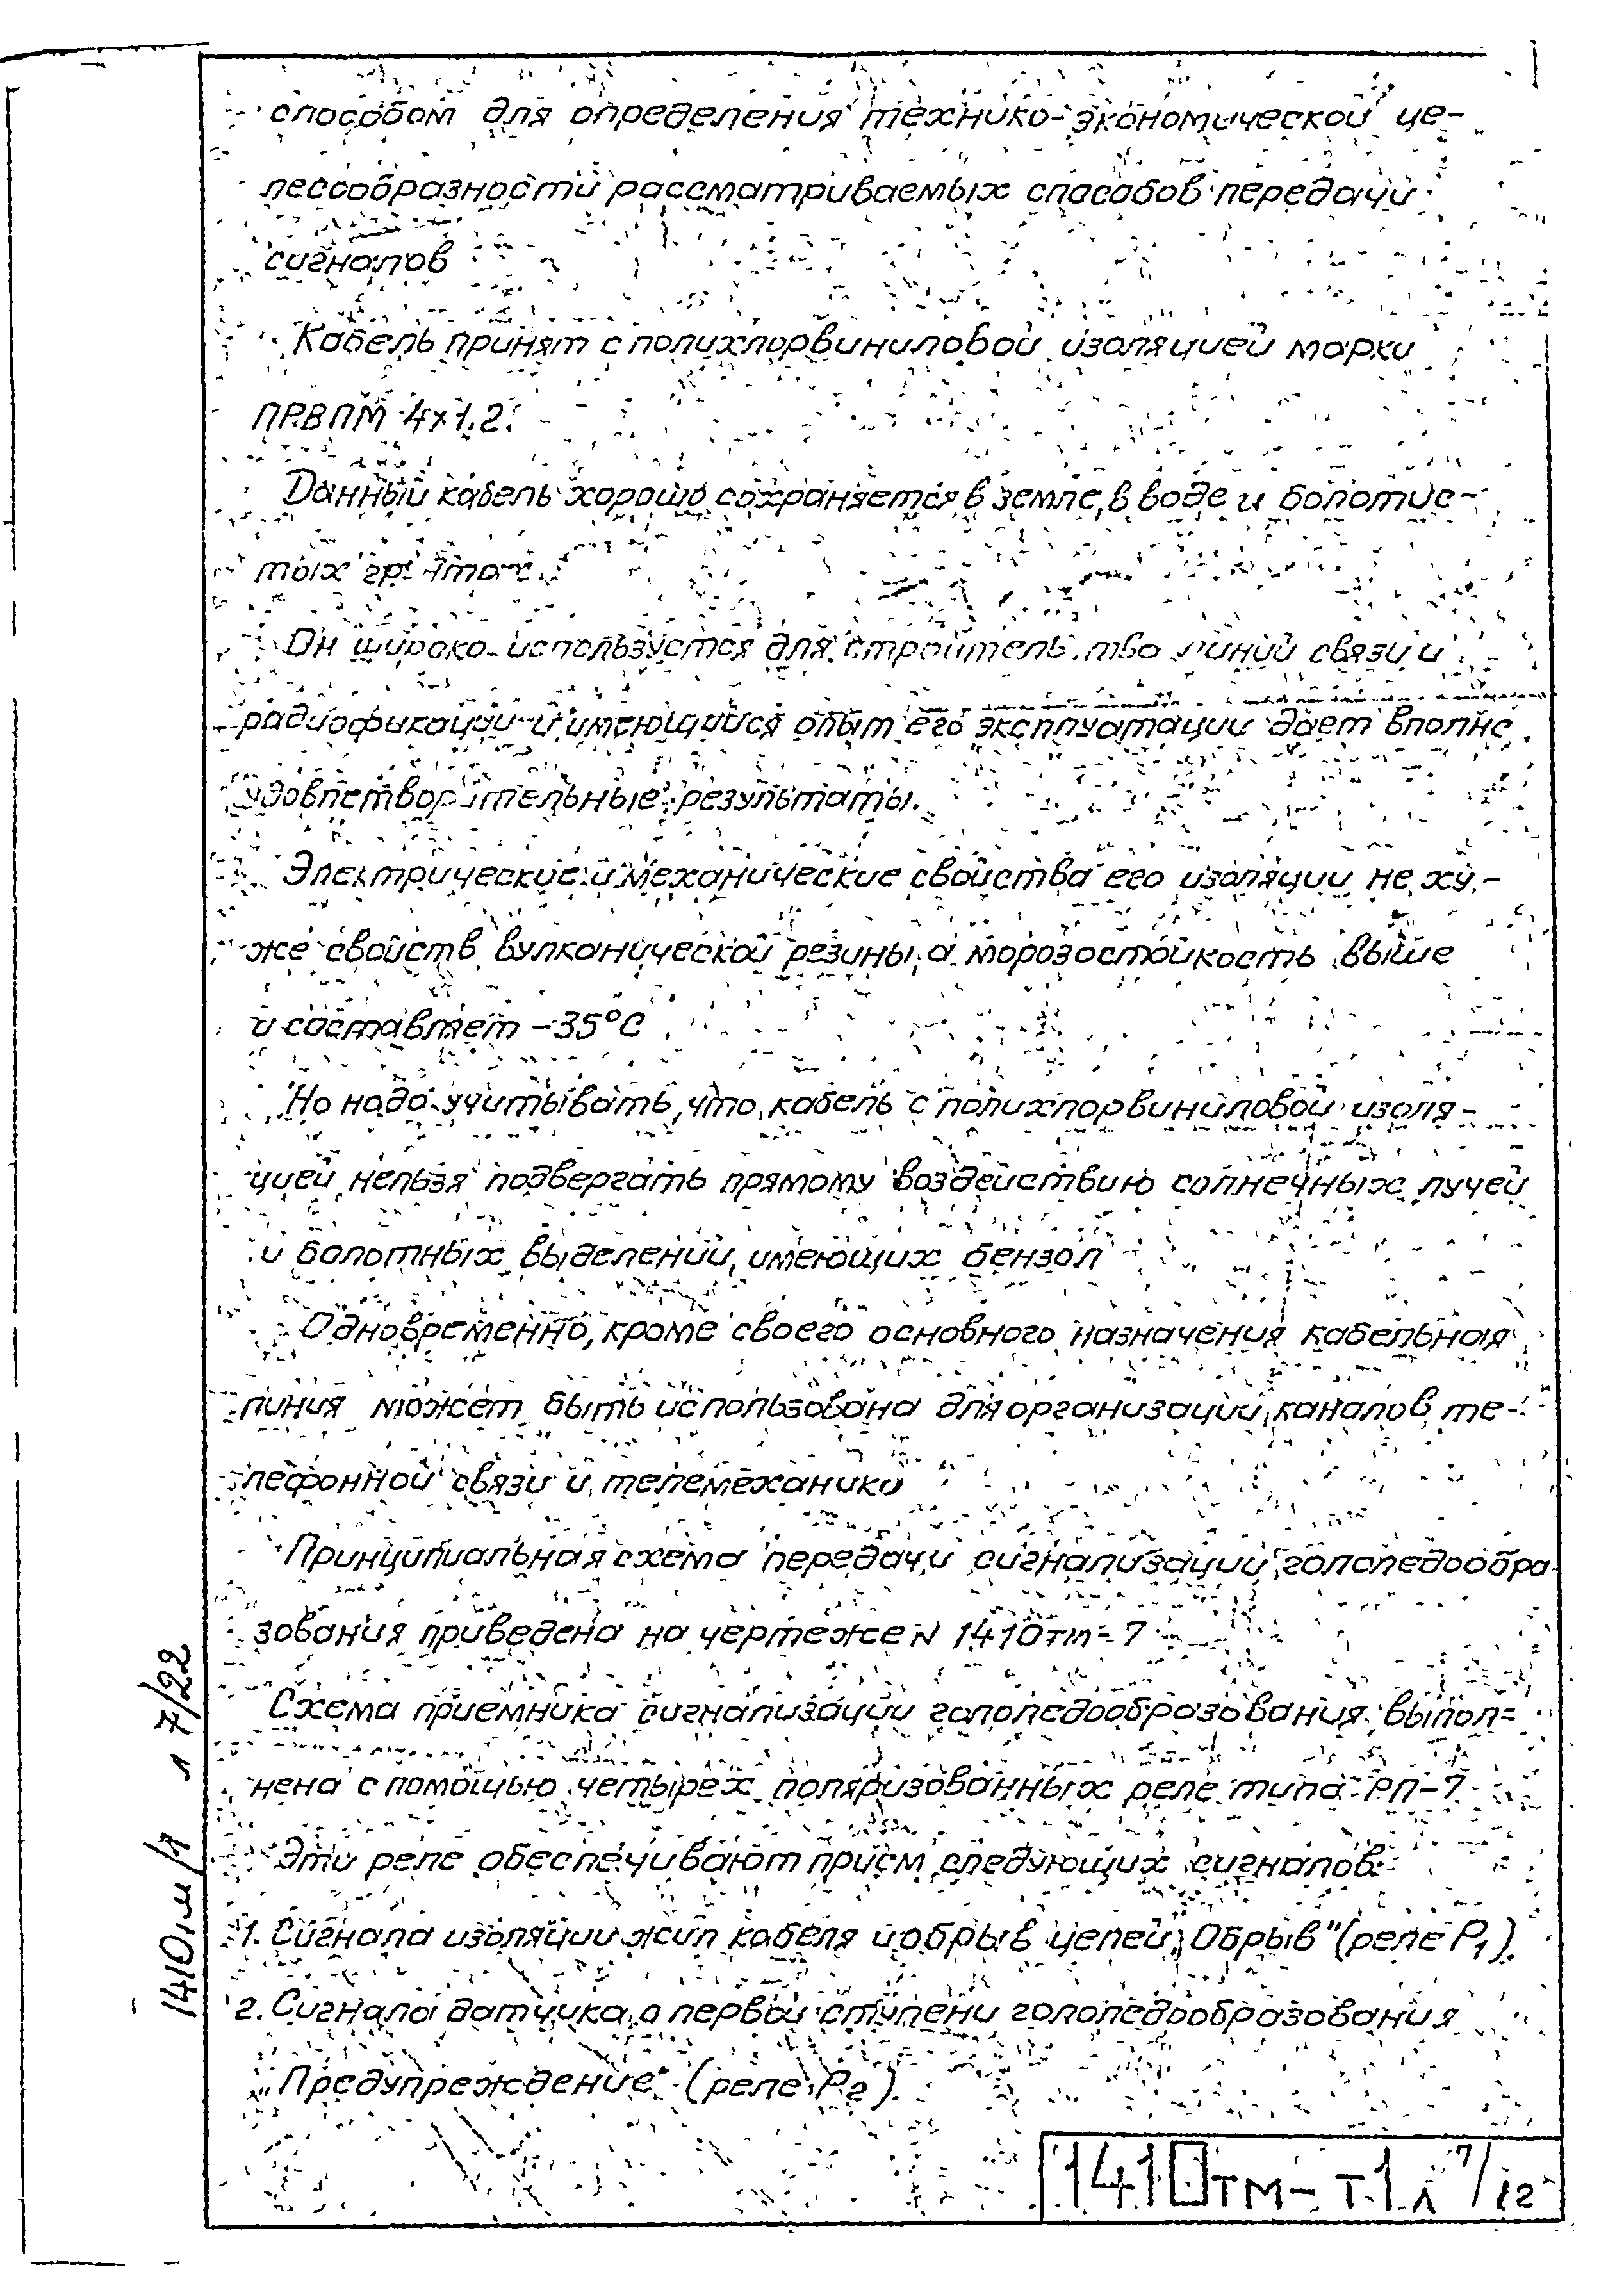 способом для определения технико-экономической це-
лесообразности рассматриваемых способов передачи
сигналов
Кабель принят с полихлорвиниловой изоляцией марки
ПРВПМ 4х1.2.
Данный кабель хорошо сохраняется в земле, в воде и болотис-
тых грунтах.
Он широко используется для строительства линий связи и
радиофикации и имеющийся опыт его эксплуатации дает вполне
удовлетворительные результаты.
Электрические и механические свойства его изоляции не ху-
же свойств вулканической резины, а морозостойкость выше
и составляет -35°С
Но надо учитывать, что кабель с полихлорвиниловой изоля-
цией нельзя подвергать прямому воздействию солнечных лучей
и болотных выделений, имеющих бензол
Одновременно, кроме своего основного назначения кабельная
линия может быть использована для организации каналов те-
лефонной связи и телемеханики
Принципиальная схема передачи сигнализации гололедообра-
зования приведена на чертеже N 1410тм-7
Схема приемника сигнализации гололедообразования выпол-
нена с помощью четырех поляризованных реле типа РП-7
Эти реле обеспечивают прием следующих сигналов:
1. Сигнала изоляции жил кабеля и обрыв цепей „Обрыв" (реле Р1).
2. Сигнала датчика о первой ступени гололедообразования
„Предупреждение" (реле Р2).
1410тм-т1 л 7/12
л 7/22